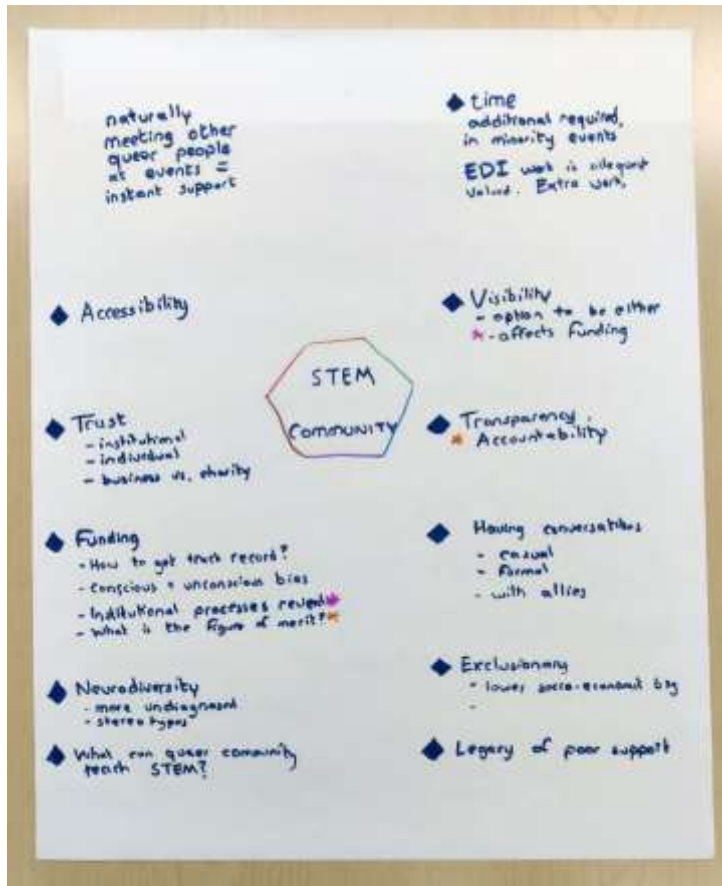 naturally
meeting other
queer people
at events =
instant support
Accessibility
Trust
- institutional
- individual
- business vs. charity
Funding
- How to get track record?
- conscious + unconscious bias
- Institutional processes
- What is the figure of merit?
Neurodiversity
- more undiagnosed
- stereotypes
What can queer community
teach STEM?
STEM
COMMUNITY
time
additional required,
in minority events
EDI work is
valued. Extra work.
Visibility
- option to be either
- affects funding
Transparency,
Accountability
Having conversations
- casual
- formal
- with allies
Exclusionary
- lower socio-economic
-
Legacy of poor support